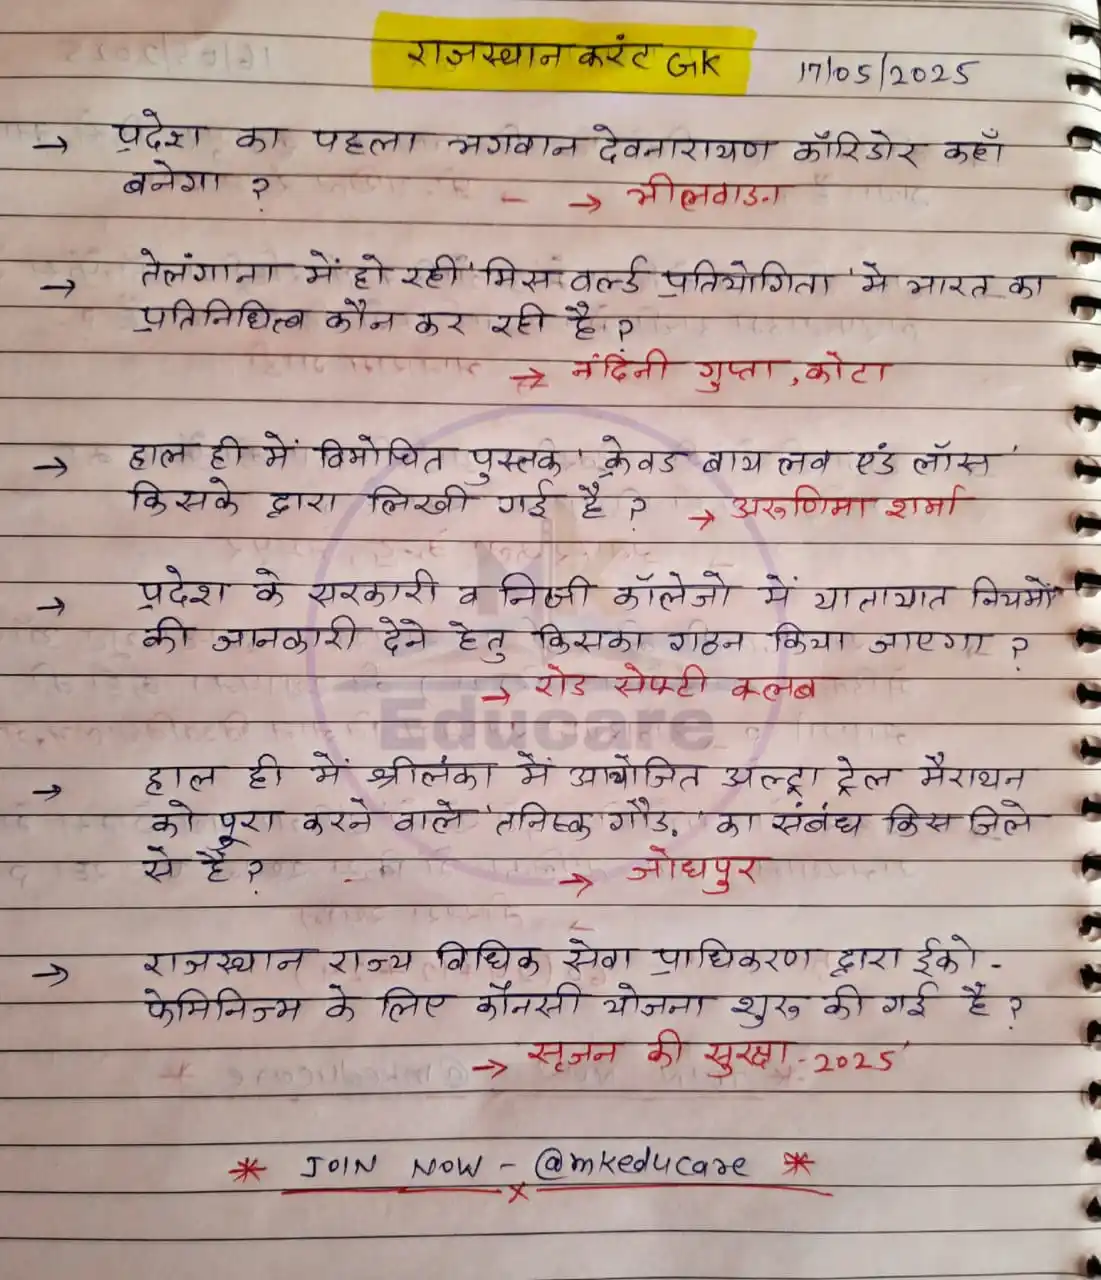 राजस्थान करंट GK 17/05/2025
→ प्रदेश का पहला भगवान देवनारायण कॉरिडोर कहाँ
बनेगा ? → भीलवाडा
→ तेलंगाना में हो रही 'मिस वर्ल्ड प्रतियोगिता' में भारत का
प्रतिनिधित्व कौन कर रही है ?
→ नंदिनी गुप्ता, कोटा
→ हाल ही में विमोचित पुस्तक 'क्रेवड बाय लव एंड लॉस'
किसके द्वारा लिखी गई है ? → अरुणिमा शर्मा
→ प्रदेश के सरकारी व निजी कॉलेजो में यातायात नियमों
की जानकारी देने हेतु किसका गठन किया जाएगा ?
→ रोड सेफ्टी क्लब
→ हाल ही में श्रीलंका में आयोजित अल्ट्रा ट्रेल मैराथन
को पूरा करने वाले 'तनिस्क गौड़' का संबंध किस जिले
से है ? → जोधपुर
→ राजस्थान राज्य विधिक सेवा प्राधिकरण द्वारा ईको-
फेमिनिज्म के लिए कौनसी योजना शुरू की गई है ?
→ सृजन की सुरक्षा-2025'
* JOIN NOW - @mkeducare *
MK
Educare